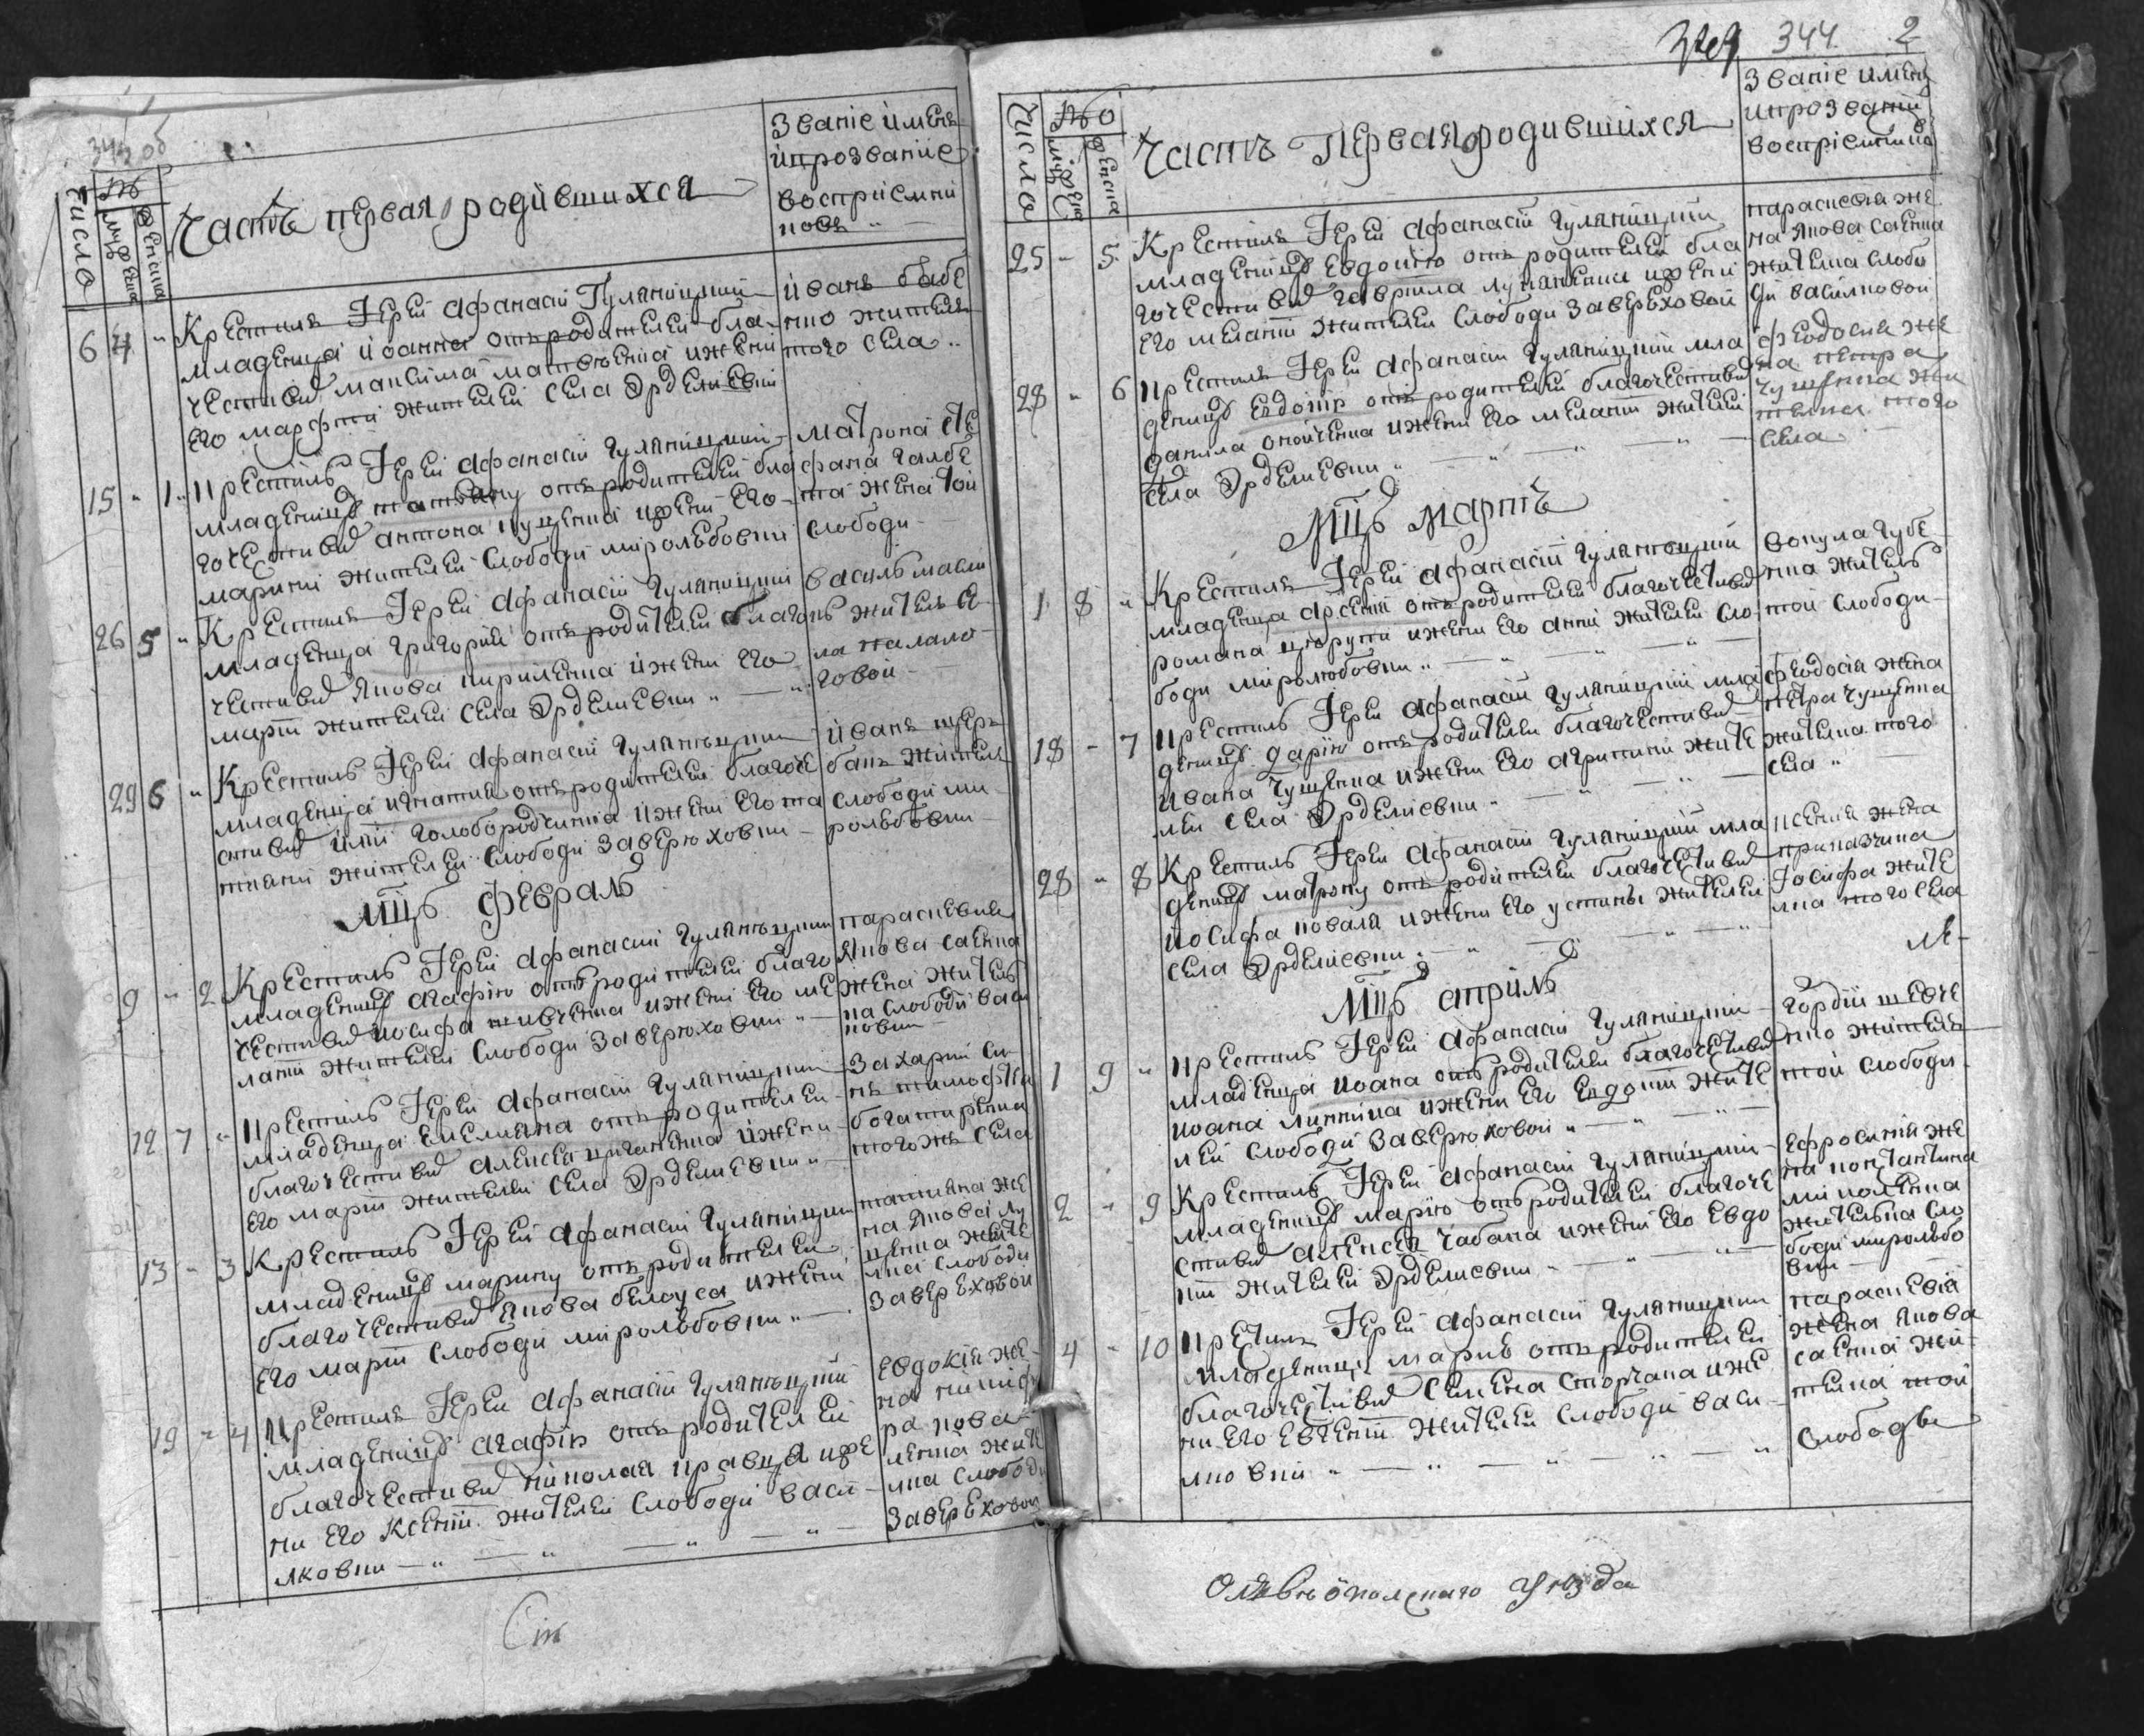 343 об
Число
муж ена
жениа
Часть первая родившихся
Званіе именъ
и прозваніе
воспріемни
ковъ
6 4 Крестилъ Іерей Афанасій Гуляницкий
младенца иоанна отъ родителей бла
честивы максима матвѣенка и жени
его марфти жителей села Эрделиевки
иванъ бабе
нко житель
того села
15 1 Крестилъ Іерей Афанасій Гуляницкий
младеницу татьяну отъ родителей бла
гочестивы антона куценка и жени его
марини жителей слободи миролюбовки
матрона сте
фана галбе
ка жена той
слободи
26 5 Крестилъ Іерей Афанасій Гуляницкий
младенца григория отъ родителей благо
честивы якова кириленка и жени его
марти жителей села Эрделиевки
житель се
ла
говой
29 6 Крестилъ Іерей Афанасій Гуляницкий
младенца игнатия отъ родителей благоче
стивы илии голобородченка и жени его та
тиани жителей слободи заверюховки
иванъ щер
банъ житель
слободи ми
рольбовки
Мцъ февраль
9 2 Крестилъ Іерей Афанасій Гуляницкий
младеницу агафию отъ родителей благо
честивы иосифа шевченка и жени его ме
лати жителей слободи заверюховки
параскевия
якова саенка
жена житель
ка слободи васи
ковки
12 7 Крестилъ Іерей Афанасій Гуляницкий
младенца емелияна отъ родителей
благочестивы алексея циганенка и жени
его марти жителей села Эрделиевки
Захарий си
нъ тимофѣя
богатиренка
тогожъ села
13 3 Крестилъ Іерей Афанасій Гуляницкий
младеницу марину отъ родителей
благочестивы якова белоуса и жени
его марти слободи мирольбовки
татияна же
на якова лу
ценка жите
лка слободи
Заверехової
19 4 Крестилъ Іерей Афанасій Гуляницкий
младеницу агафию отъ родителей
благочестивы николая кравца и же
ни его ксении жителей слободи васи
лковки
Евдокія же
на никифо
ра кова
ленка жите
лка слободи
Заверехової
344 2
Число
муж ена
жениа
Часть первая родившихся
Званіе имени
и прозваній
воспріемника
25 5 Крестилъ Іерей Афанасій Гуляницкий
младеницу евдокию отъ родителей бла
гочестивы гаврила лукяненки и жени
его мелатй жителей слободи заверюховой
параскевия же
на якова саенка
жителка слобо
ди василковой
28 6 Крестилъ Іерей Афанасій Гуляницкий мла
деницу евдокию отъ родителей благочестивы
данила онойченка и жени его мелатй жителей
села Эрделиевки
Феодосия же
на петра
чущенка жи
телка того
села
Мцъ мартъ
1 8 Крестилъ Іерей Афанасій Гуляницкий
младенца арсения отъ родителей благочестивы
романа и жени его анни жителей сло
боди миролюбовки
вокула губе
нка житель
той слободи
18 7 Крестилъ Іерей Афанасій Гуляницкий мла
деницу дарию отъ родителей благочестивы
ивана чущенка и жени его агрипини жите
лей села Эрделиевки
Феодосія жена
петра чущенка
жителка того
села
28 8 Крестилъ Іерей Афанасій Гуляницкий мла
деницу матрону отъ родителей благочестивы
иосифа коваля и жени его устини жителей
села Эрделиевки
ксения жена
приказчика
Іосифа жите
лка того села
Мцъ априль
1 9 Крестилъ Іерей Афанасій Гуляницкий
младенца иоана отъ родителей благочестивы
иоана линника и жени его евдокии жите
лей слободи заверюховой
гордій шевче
нко житель
той слободи
2 9 Крестилъ Іерей Афанасій Гуляницкий
младеницу марию отъ родителей благоче
стивы алексея чабана и жени его евдо
кии жителей Эрделиевки
Ефросиния же
на константина
миколенка
жителька сло
боди мирольбо
вки
4 10 Крестилъ Іерей Афанасій Гуляницкий
младеницу марию отъ родителей
благочестивы семена сторчака и же
ни его евгении жителей слободи васи
лковки
параскевія
жена якова
саенка жи
телка той
слободы
Олвѣопольскаго Уѣзда